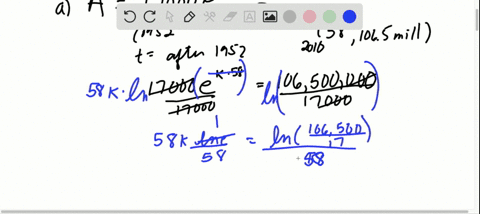 a) A =
(1952 (58, 106.5 mill)
t = after 1952 2010
58K · ln 17000(e^K·58) / 17000 = ln(106,500,000 / 17000)
1
58K lne / 58 = ln(106,500 / 17) / 58